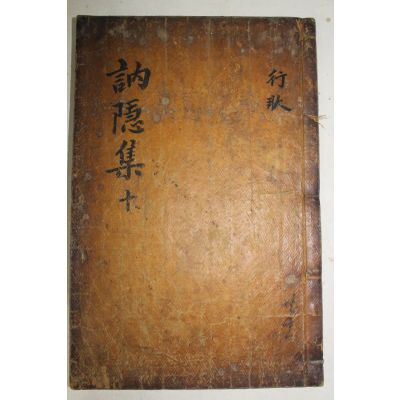 行狀
訥隠集 十